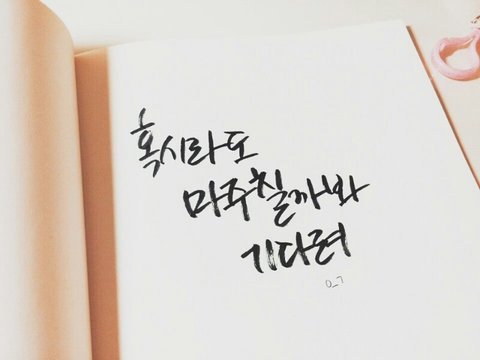 혹시라도
마주칠까봐
기다려
0_7